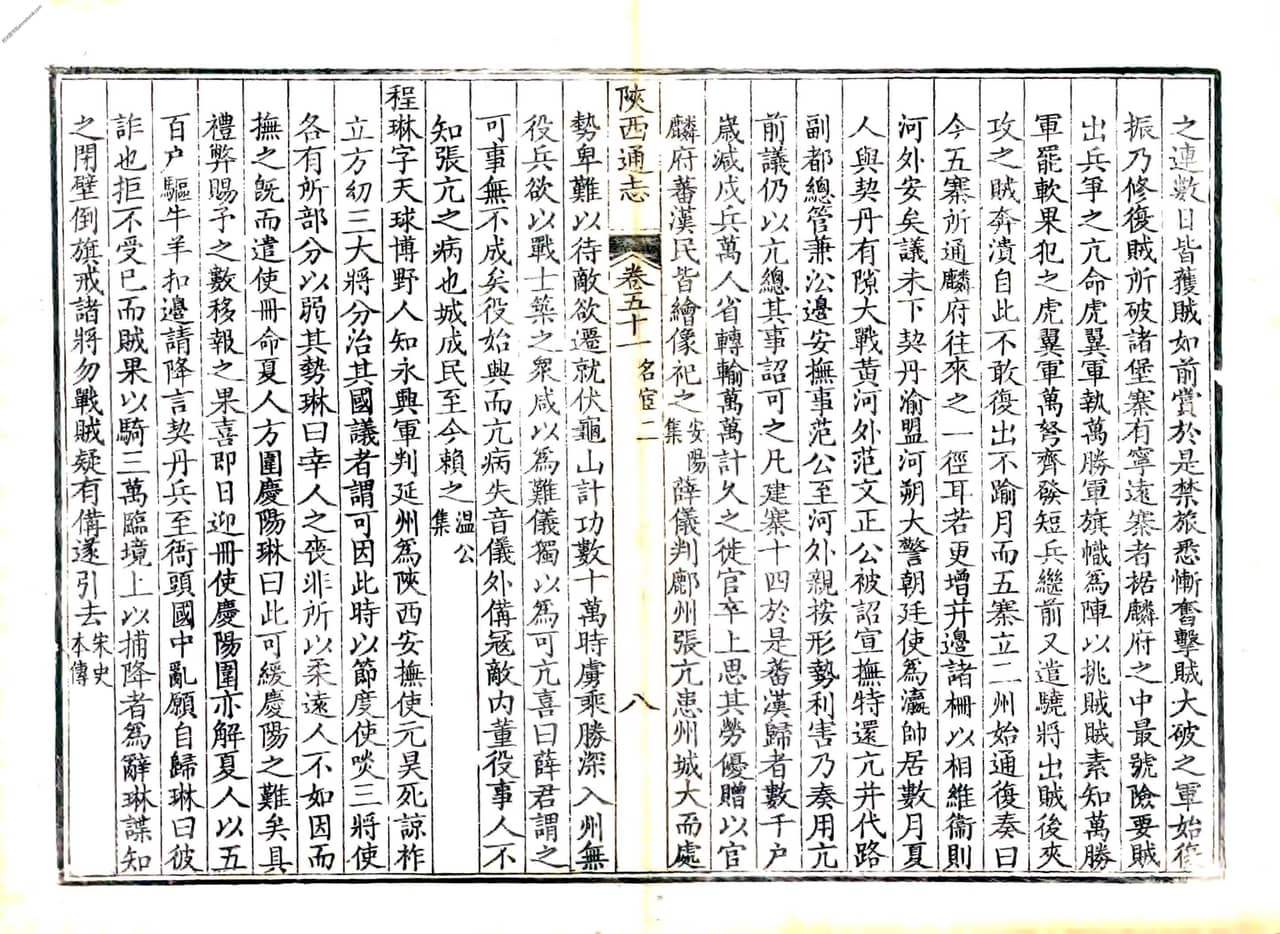 之連數日皆獲賊如前賞於是禁旅悉慚奮擊賊大破之軍始復
振乃修復賊所破諸堡寨有寧遠寨者据麟府之中最號險要賊
出兵爭之亢命虎翼軍執萬勝軍旗幟為陣以挑賊賊素知萬勝
軍罷軟果犯之虎翼軍萬弩齊發短兵繼前又遣驍將出賊後夾
攻之賊奔潰自此不敢復出不踰月而五寨立二州始通復奏曰
今五寨所通麟府往來之一徑耳若更增并邊諸柵以相維衞則
河外安矣議未下契丹渝盟河朔大警朝廷使為瀛帥居數月夏
人與契丹有隙大戰黃河外范文正公被詔宣撫特還亢并代路
副都總管兼㳂邊安撫事范公至河外親按形勢利害乃奏用亢
前議仍以亢總其事詔可之凡建寨十四於是蕃漢歸者數千户
歳減戍兵萬人省轉輸萬萬計久之徙官卒上思其勞優贈以官
麟府蕃漢民皆繪像祀之安陽集薛儀判鄜州張亢患州城大而處
陝西通志 卷五十一 名宦二 八
勢卑難以待敵欲遷就伏龜山計功數十萬時虜乘勝深入州無
役兵欲以戰士築之衆咸以為難儀獨以為可亢喜曰薛君謂之
可事無不成矣役始興而亢病失音儀外備冦敵内董役事人不
知張亢之病也城成民至今賴之温公集
程琳字天球博野人知永興軍判延州為陝西安撫使元昊死諒祚
立方幼三大將分治其國議者謂可因此時以節度使啖三將使
各有所部分以弱其勢琳曰幸人之喪非所以柔遠人不如因而
撫之旣而遣使冊命夏人方圍慶陽琳曰此可緩慶陽之難矣具
禮弊賜予之數移報之果喜即日迎冊使慶陽圍亦解夏人以五
百户驅牛羊扣邊請降言契丹兵至衙頭國中亂願自歸琳曰彼
詐也拒不受已而賊果以騎三萬臨境上以捕降者為辭琳諜知
之閉壁倒旗戒諸將勿戰賊疑有備遂引去宋史本傳